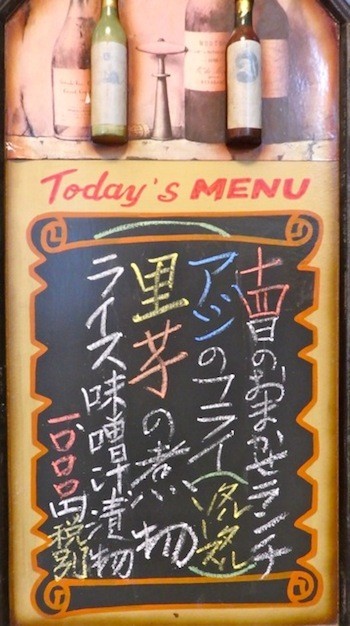 Today's MENU
十四日のおまかせランチ
アジのフライ(タルタル)
里芋の煮物
ライス味噌汁漬物
一〇〇〇円税別